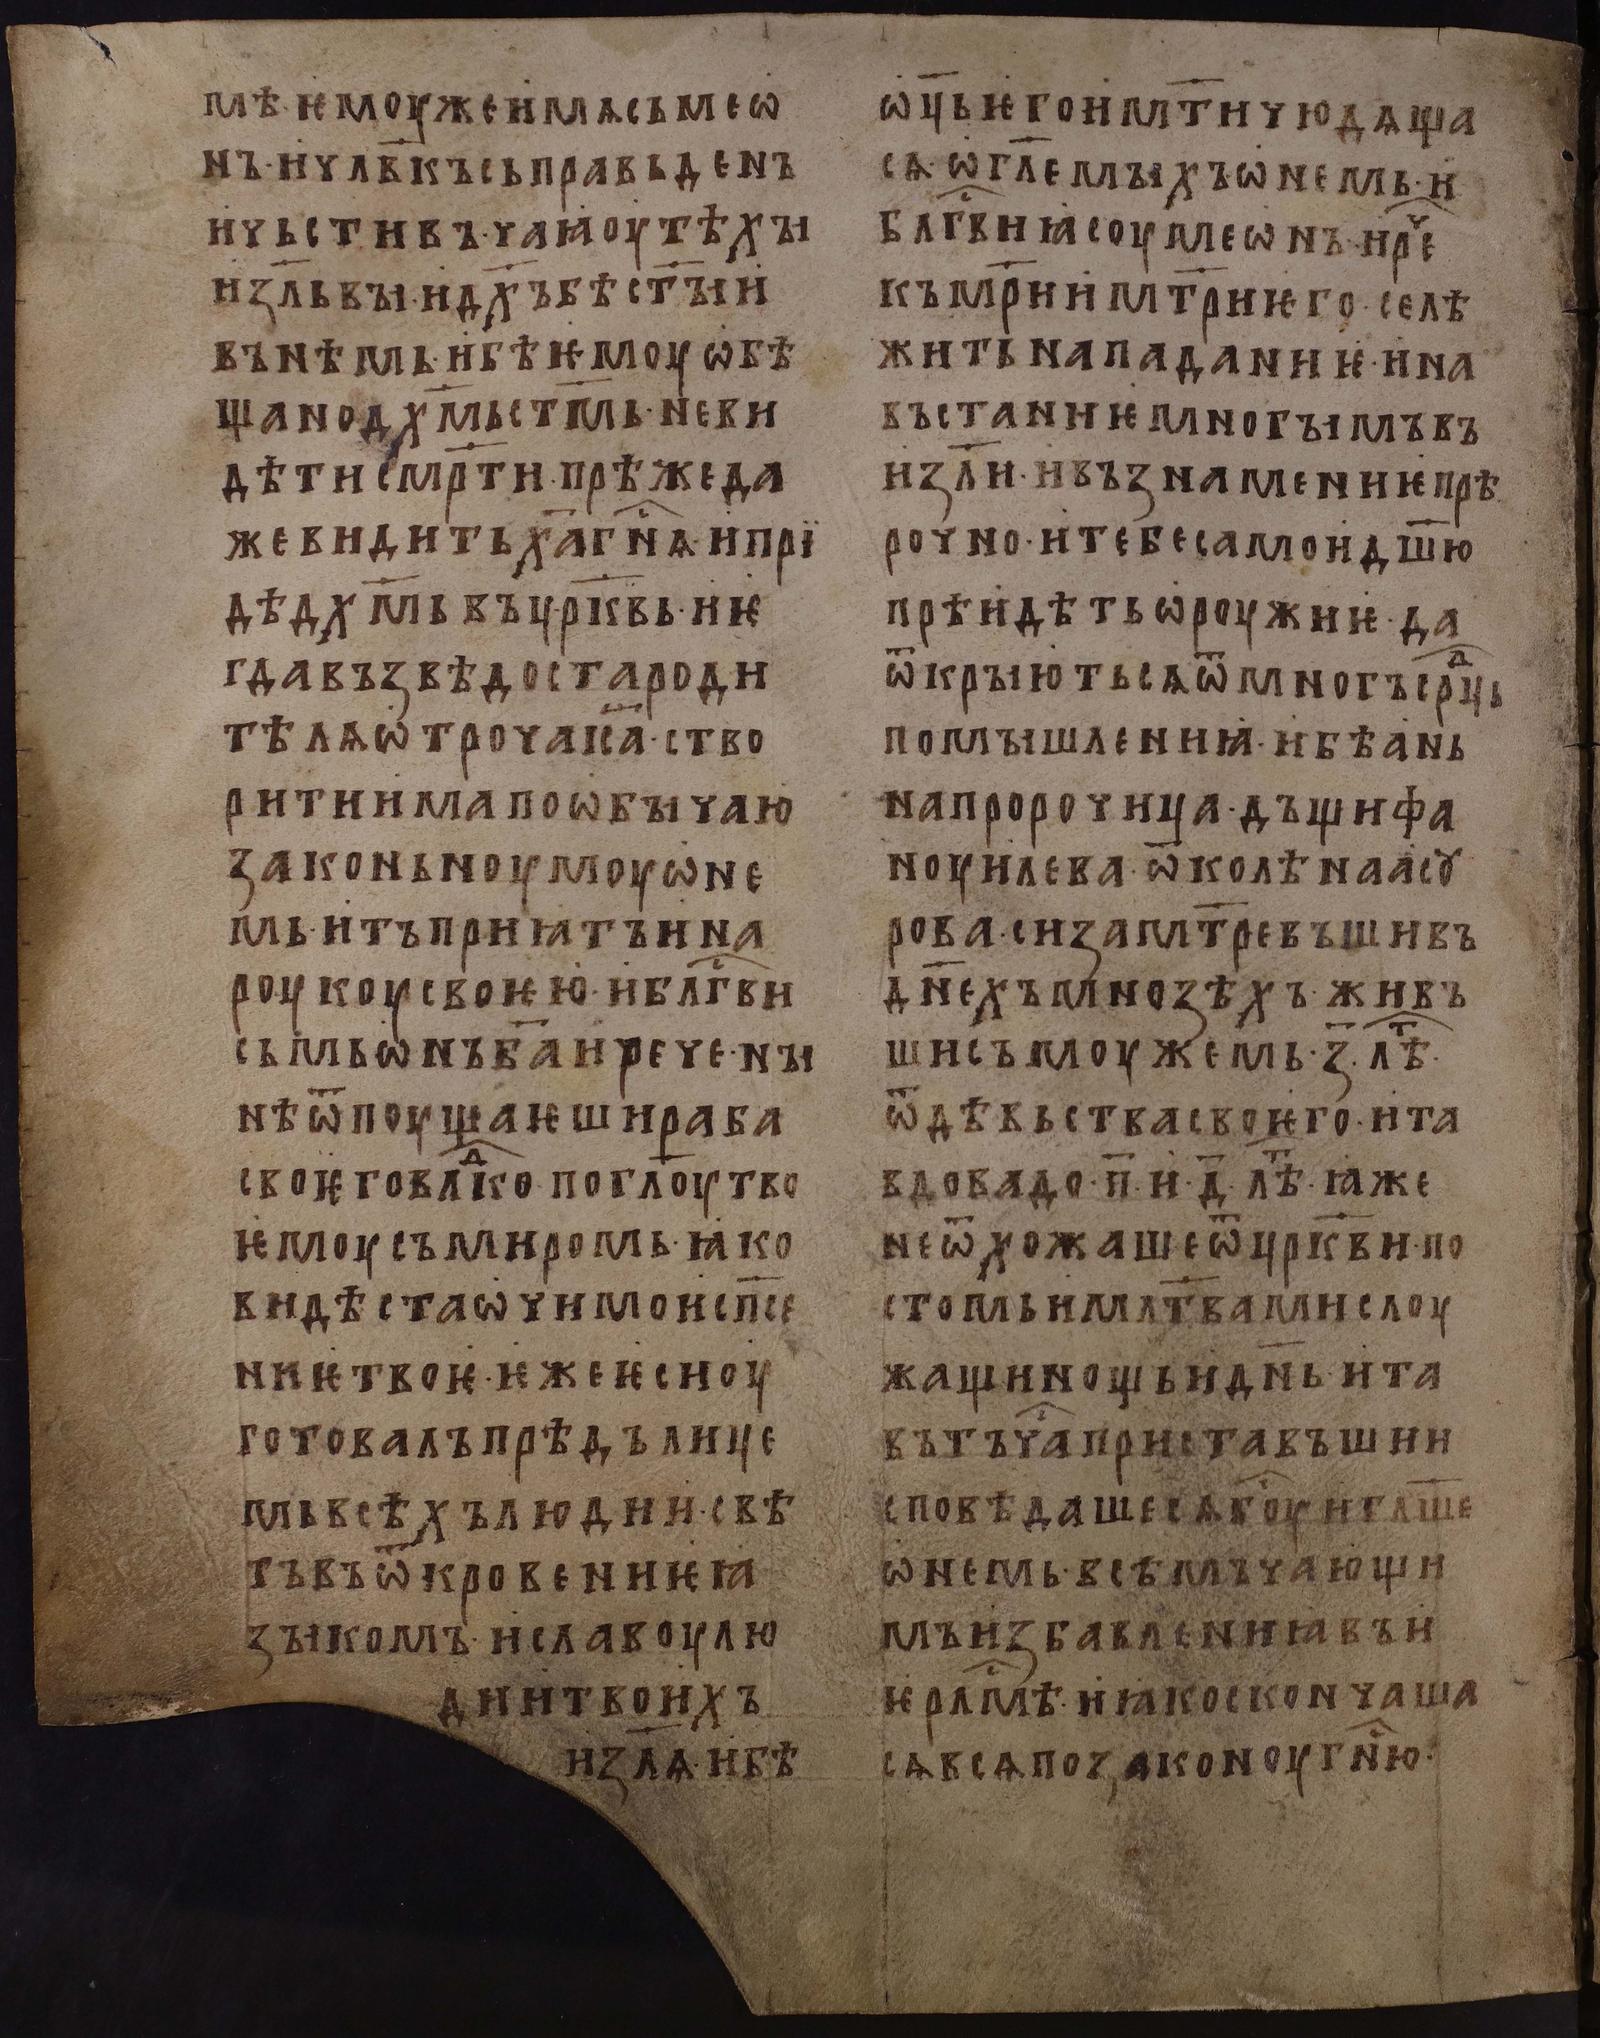 мѣ·ѥмоужеимѧсьмеѡ
нъ·ичл҃вкъсьправьденъ
ичьстивъ·чаꙗоутѣхꙑ
из҃лвꙑ·идх҃ъбѣст҃ꙑи
вънѣмь·ибѣѥмоуѡбѣ
щанодх҃мьст҃мь·неви
дѣтисмр҃ти·прѣжеда
жевидитьх҃агⷭ҇нѧ·ипрї
дѣдх҃мьвъцр҃квь·иѥ
гдавъзвѣдостароди
тѣлѧѡтрочаиса·ство
ритиимапоѡбꙑчаю
законьноумоуѡне
мь·итъприꙗтъина
роукоусвоѥю·иблⷭ҇гви
сьмьѡнъб҃аирече·нꙑ
нѣѿпоущаѥшираба
своѥговлⷣко·погл҃оутво
ѥмоусъмиромь·ꙗко
видѣстаѡчимоисп҃се
ниѥтвоѥ·ѥжеѥсиоу
готовалъпрѣдълице
мьвсѣхълюдии·свѣ
тъвъѿкровениѥꙗ
зꙑкомъ·иславоулю
диитвоихъ
из҃лѧ·ибѣ
ѡц҃ьѥгоимт҃ичюдѧща
сѧ·ѡгл҃емꙑхъѡнемь·и
блⷭ҇гвиꙗсоумеѡнъ·ирⷱ҇е
къмр҃иимт҃риѥго·селѣ
житьнападаниѥ·ина
въстаниѥмногꙑмъвъ
из҃ли·ивъзнамениѥпрѣ
рочно·итебесамоидш҃ю
прѣидѣтьѡроужиѥ·да
ѿкрꙑютьсѧѿмногъсрⷣць
помꙑшлениꙗ·ибѣань
напророчица·дъщифа
ноуилева·ѿколѣнаасꙋ
рова·сизамт҃ревъшивъ
дн҃ехъмнозѣхъ·живъ
шисъмоужемь·з҃·лѣⷮ·
ѿдѣвьствасвоѥго·ита
вдовадо·п҃·и·д҃·лѣⷮ·ꙗже
неѿхожашеѿцр҃кви·по
стомьимлт҃вамислоу
жащинощьидн҃ь·ита
вътъчⷭ҇апритавъшии
сповѣдашесѧб҃оуигл҃ше
ѡнемь·всѣмъчающи
мъизбавлениꙗвъи
ѥрлⷭ҇мѣ·иꙗкосконьчаша
сѧвсѧпозаконоугⷭ҇ню·